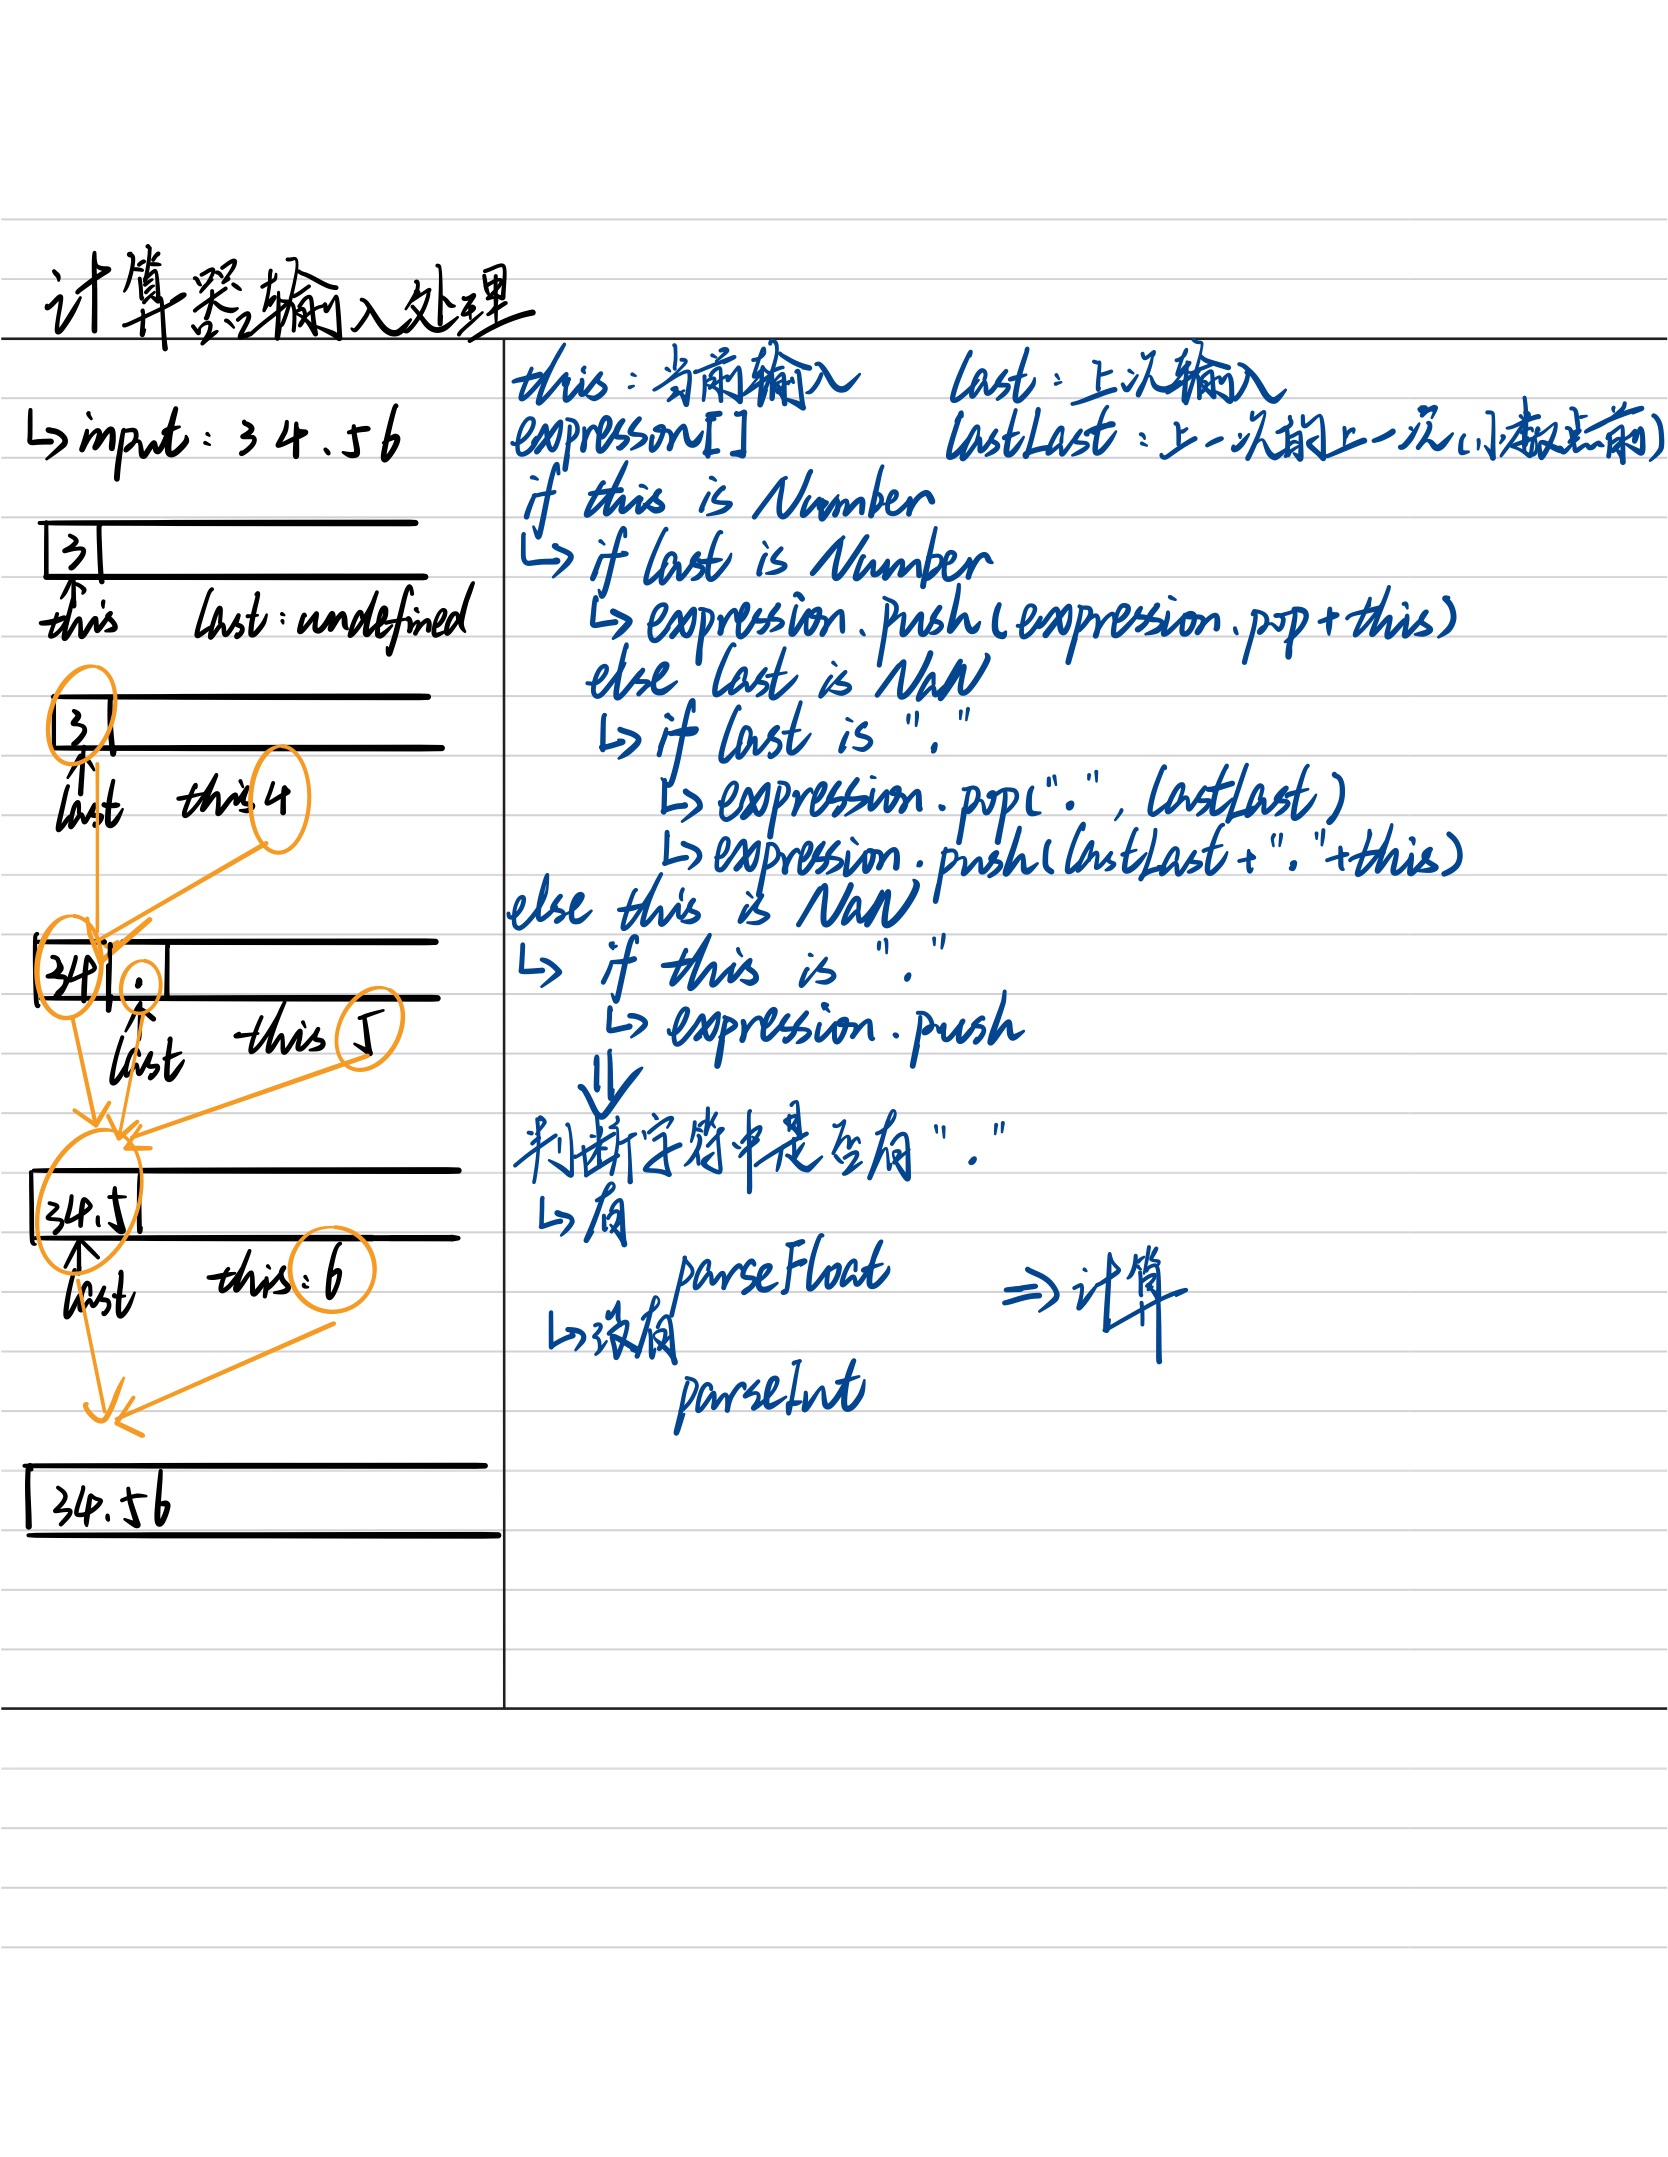 计算器输入处理
↳input: 34.56
3
this last: undefined
3
last this 4
34 .
last this 5
34.5
last this: 6
34.56
this: 当前输入 last: 上次输入
expresson[] lastLast: 上一次的上一次(小数点前)
if this is Number
↳ if last is Number
↳ expression.push(expression.pop+this)
else last is NaN
↳ if last is "."
↳ expression.pop(".", lastLast)
↳ expression.push(lastLast+"."+this)
else this is NaN
↳ if this is "."
↳ expression.push
⇓
判断字符中是否有"."
↳ 有
parseFloat
⇒ 计算
↳ 没有
parseInt